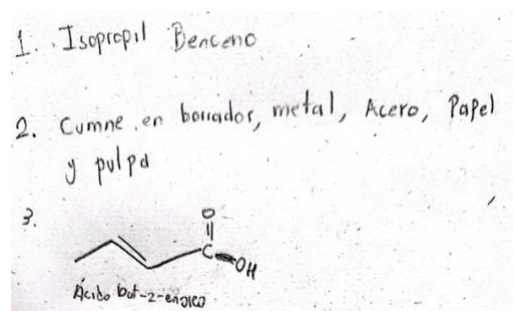 1. Isopropil Benceno
2. Cumne en borrador, metal, Acero, Papel
y pulpa
3.
O
C
OH
Ácido but-2-enoico